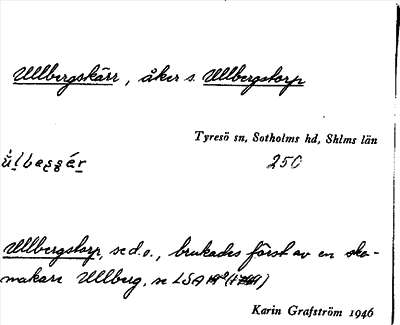 Ullbergskärr, åker s. Ullbergstorp
Tyresö sn, Sotholms hd, Shlms län
250
Ullbergstorp, se d.o., brukades först av en sko-
makare Ullberg, se LSA
Karin Grafström 1946